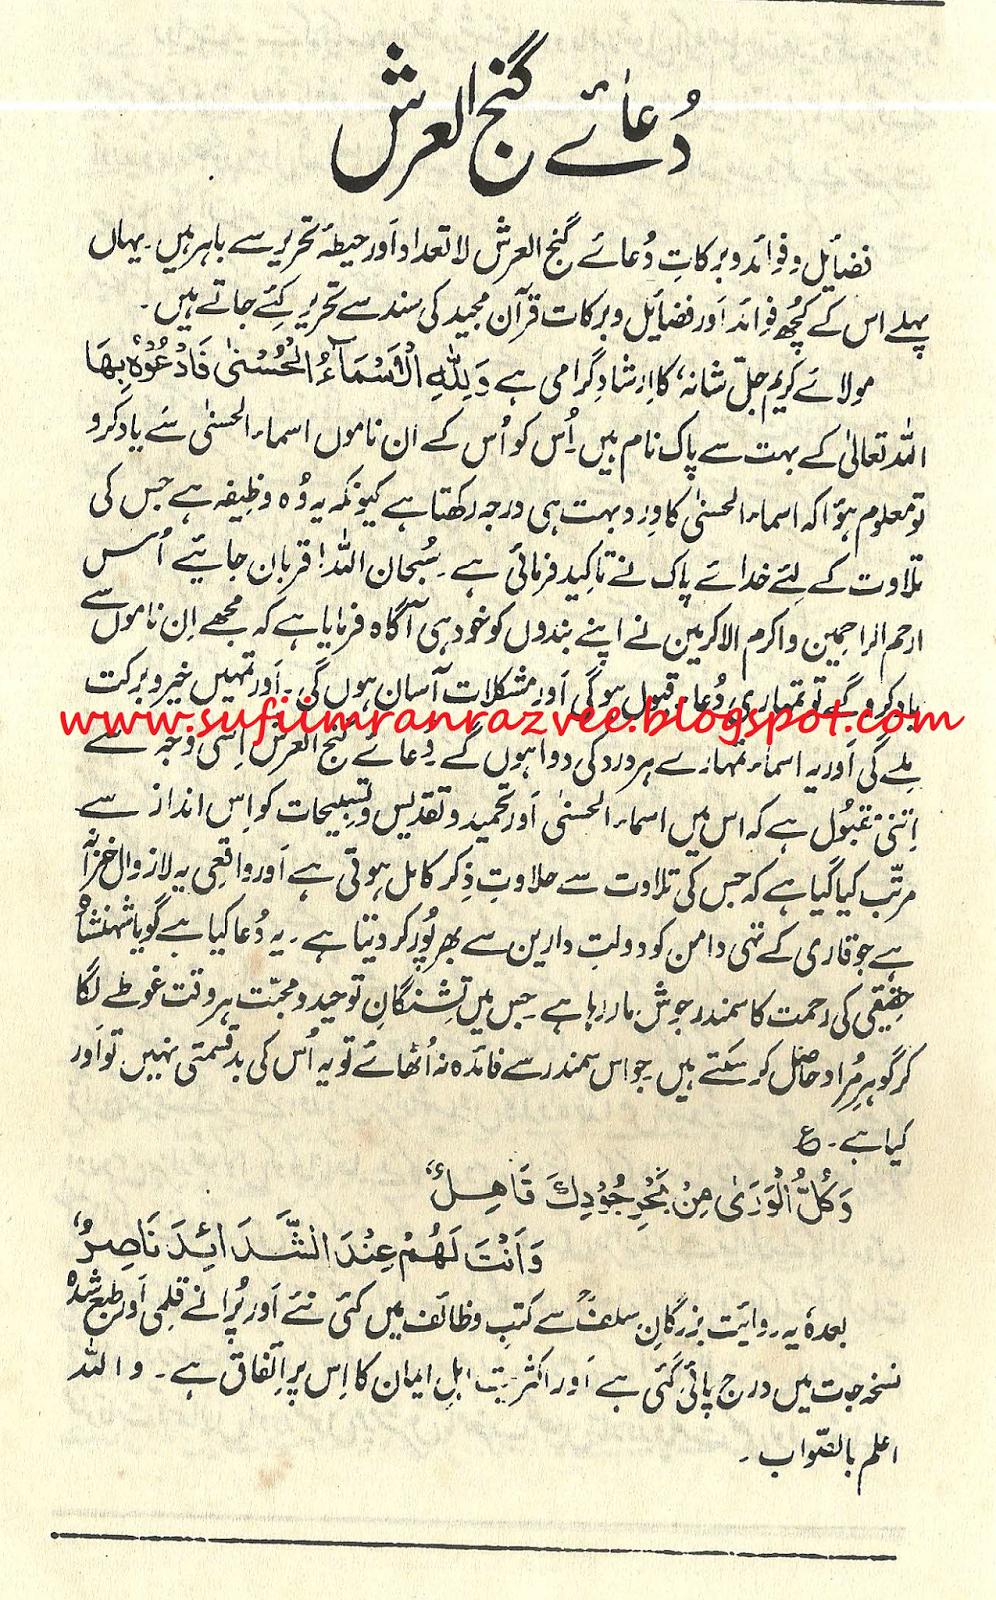 دُعائے گنج العرش
فضائل و فوائد و برکاتِ دُعائے گنج العرش لا تعداد اَور حیطۂ تحریر سے باہر ہیں۔ یہاں
پہلے اس کے کُچھ فوائد اَور فضائل و برکات قرآن مجید کی سند سے تحریر کئے جاتے ہیں۔
مولائے کریم جلّ شانہٗ کا اِرشادِ گرامی ہے وَلِلّٰہِ الْاَسْمَآءُ الْحُسْنٰی فَادْعُوْہُ بِھَا
اللہ تعالیٰ کے بہت سے پاک نام ہیں۔ اُس کو اُس کے ان ناموں اسماء الحسنٰی سَے یاد کرو
تو معلوم ہؤا کہ اسماء الحسنٰی کا وِرد بہت ہی درجہ رکھتا ہے کیونکہ یہ وُہ وظیفہ ہے جس کی
تلاوت کے لئے خدائے پاک نے تاکید فرمائی ہے۔ سُبحان اللہ! قربان جائیے اُس
ارحم الراحمین و اکرم الاکرمین نے اپنے بندوں کو خود ہی آگاہ فرمایا ہے کہ مجھے اِن ناموں سے
یاد کرو گے تو تمہاری دُعاء قبول ہو گی اَور مشکلات آسان ہوں گی۔ اَور تمہیں خیر و برکت
www.sufiimranrazvee.blogspot.com
ملے گی اَور یہ اسماء تمہارے ہر درد کی دوا ہوں گے دُعائے گنج العرش اِسی وجہ سے
اِتنی مقبُول ہے کہ اس میں اسماء الحسنٰی اَور تحمید و تقدیس و تسبیحات کو اِس انداز سے
مرتّب کیا گیا ہے کہ جس کی تلاوت سے حلاوتِ ذِکر کامل ہوتی ہے اَور واقعی یہ لازوال خزانہ
ہے جو قاری کے تہی دامن کو دولتِ دارین سے بھرپُور کر دیتا ہے۔ یہ دُعا کیا ہے گویا شہنشاہ
حقیقی کی رحمت کا سمندر جوش مار رہا ہے جس میں تشنگانِ توحید و محبّت ہر وقت غوطے لگا
کر گوہرِ مُراد حاصل کر سکتے ہیں جو اس سمندر سے فائدہ نہ اُٹھائے تو یہ اُس کی بدقسمتی نہیں تو اَور
کیا ہے۔ ع
وَکُلُّ الْوَرٰی مِنْ بَحْرِ جُوْدِكَ
وَاَنْتَ لَھُمْ عِنْدَ الشَّدَائِدَ نَاصِرُ
بعدہٗ یہ روایَت بزرگانِ سلفؒ سے کتبِ وظائف میں کئی نئے اَور پُرانے قلمی اَور طبع شدہ
نسخہ جات میں درج پائی گئی ہے اَور اکثریت اہلِ ایمان کا اِس پر اِتّفاق ہے۔ واللہ
اعلم بالصّواب۔